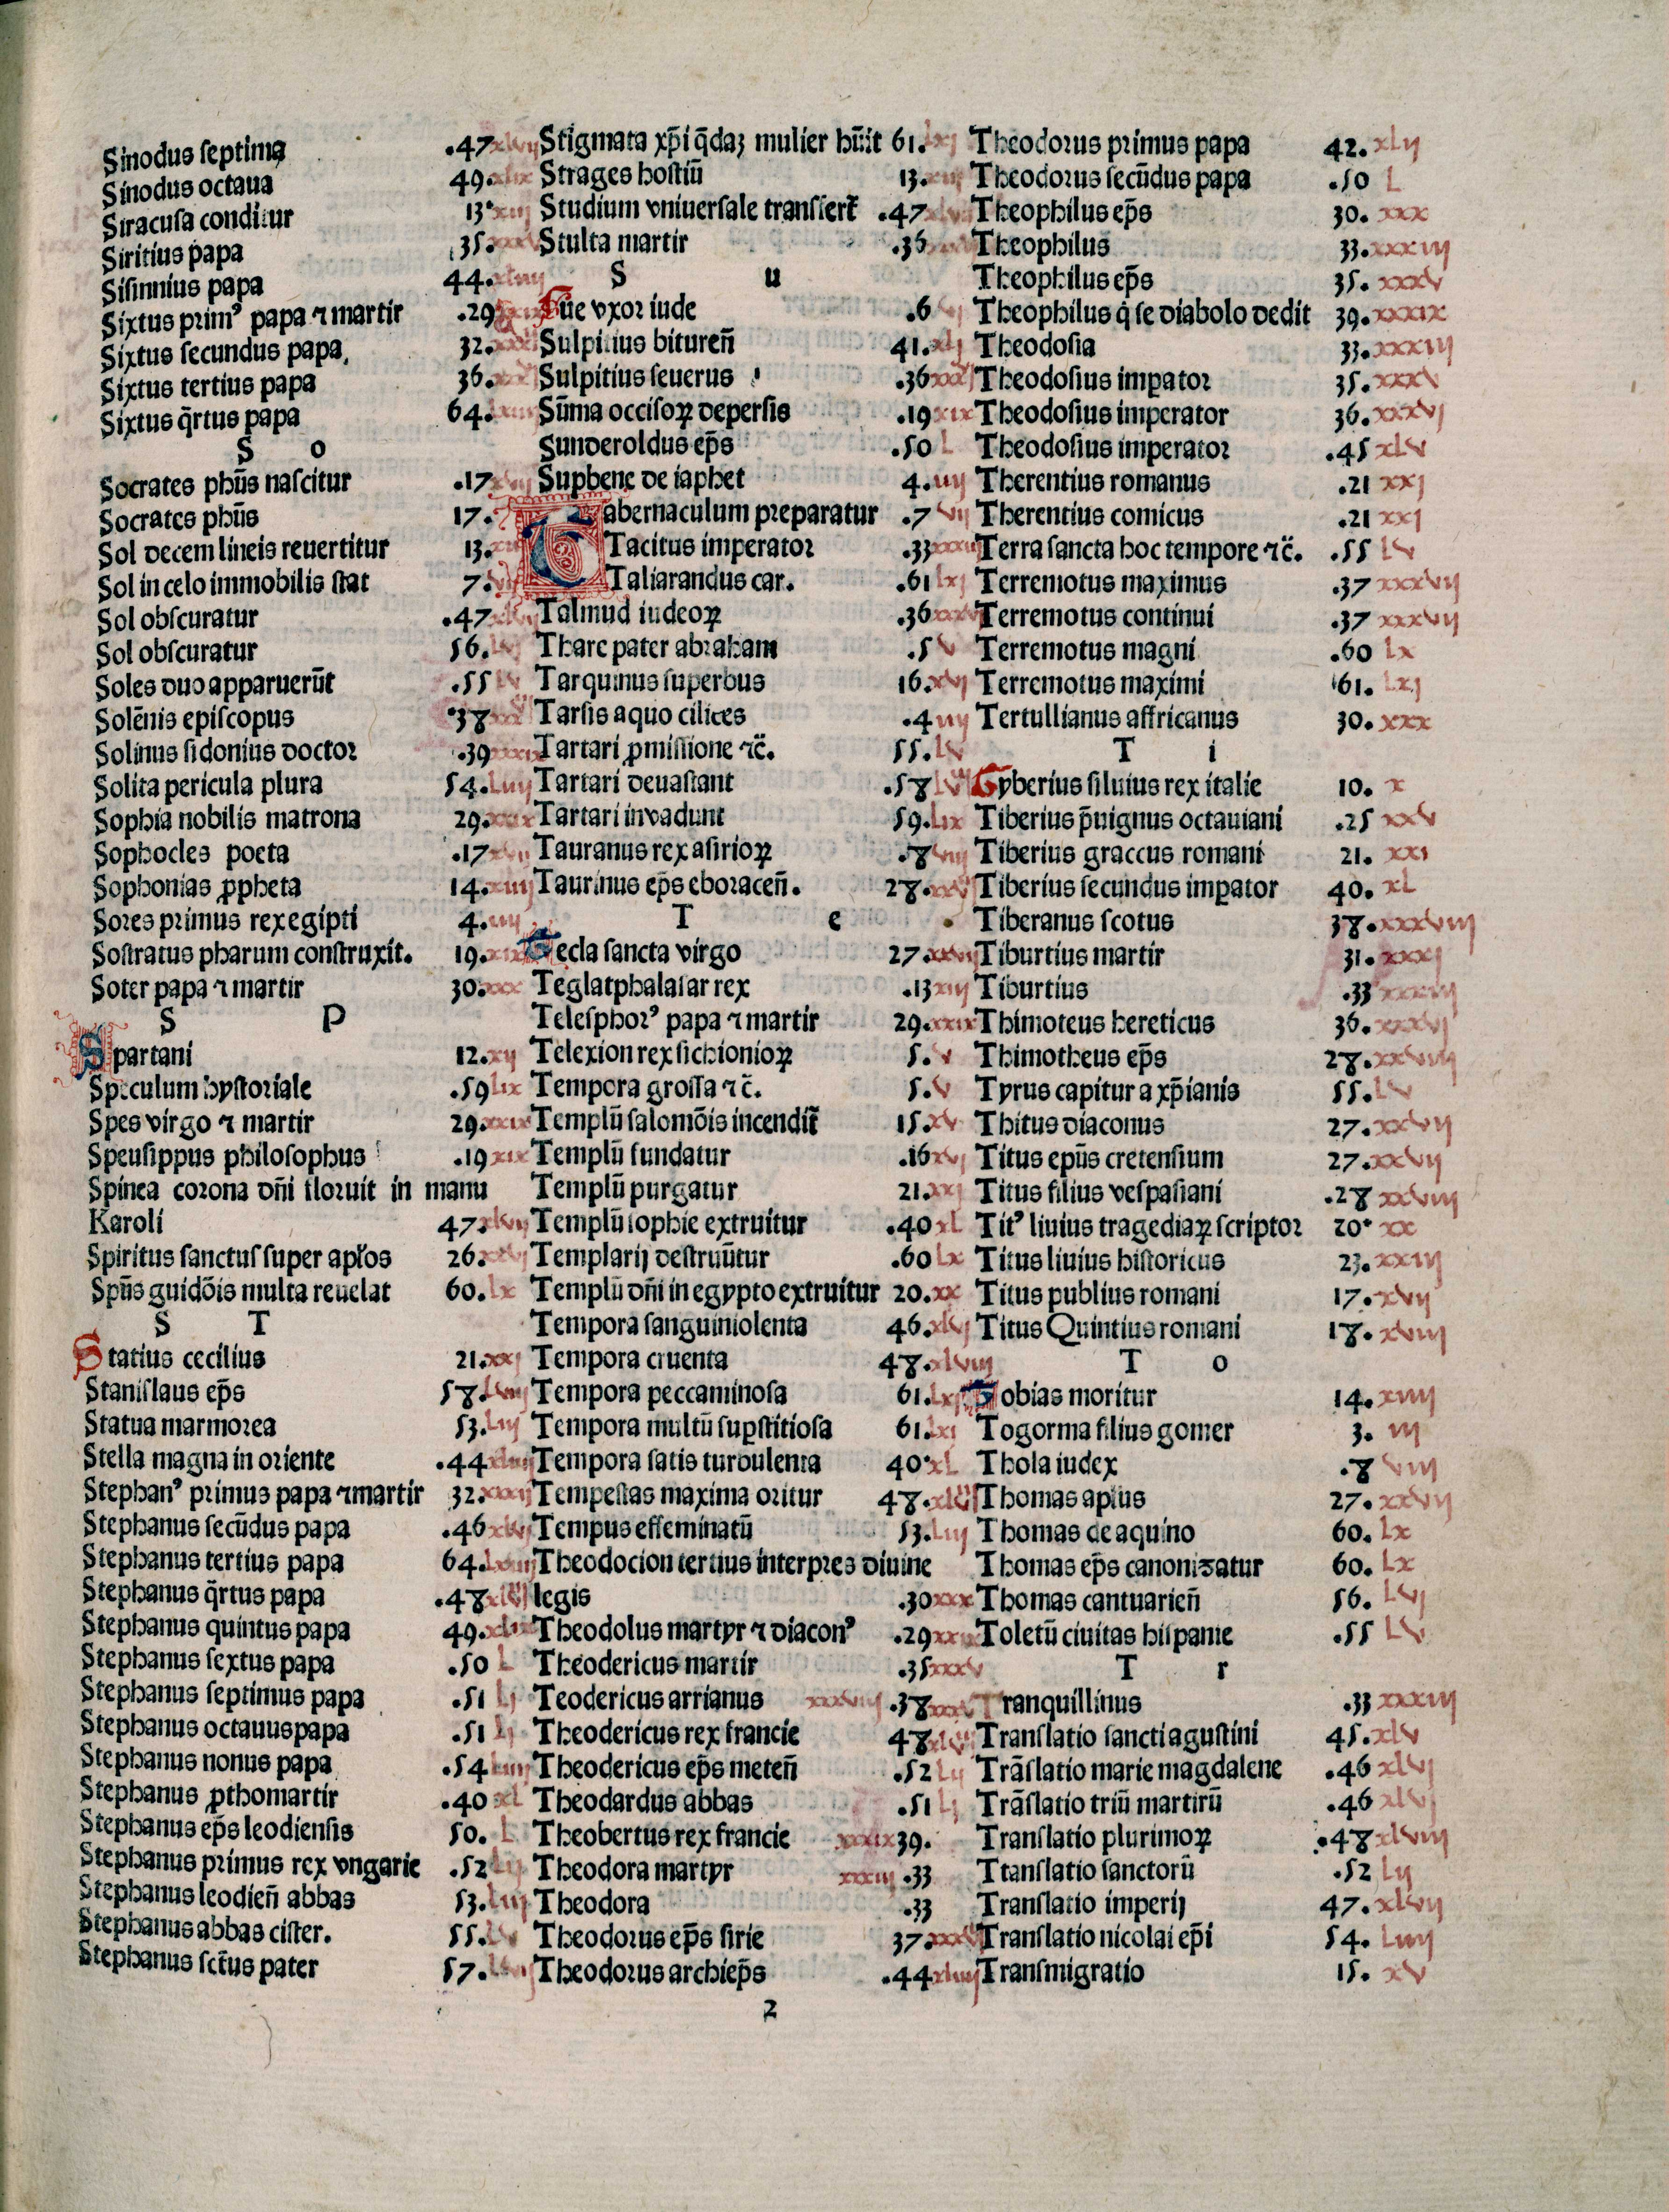 Sinodus septima .47 xlvij
Sinodus octaua 49. xlix
Siracusa conditur 13. xiij
Siritius papa 35. xxxv
Sisinnius papa 44. xliiij
Sixtus primꝰ papa ⁊ martir .29 xxix
Sixtus secundus papa, 32.
Sixtus tertius papa 36.
Sixtus q̄rtus papa 64.
S o
Socrates phūs nascitur .17
Socrates phūs 17.
Sol decem lineis reuertitur 13.
Sol in celo immobilis stat 7.
Sol obscuratur .47
Sol obscuratur 56.
Soles duo apparuerūt .55 lv
Solēnis episcopus .38
Solinus sidonius doctor .39
Solita pericula plura 54. Liiij
Sophia nobilis matrona 29. xxix
Sophocles poeta .17
Sophonias ꝓpheta 14. xiiij
Sores primus rex egipti 4. iiij
Sostratus pharum construxit. 19. xix
Soter papa ⁊ martir 30. xxx
S p
Spartani 12. xij
Speculum hystoriale .59 lix
Spes virgo ⁊ martir 29. xxix
Speusippus philosophus .19 xix
Spinea corona dn̄i floruit in manu
Karoli 47. xlvij
Spiritus sanctus super apłos 26. xxvj
Spūs guidōis multa reuelat 60. lx
S T
Statius cecilius 21. xxj
Stanislaus ep̄s 58. Lviij
Statua marmorea 53. Liij
Stella magna in oriente .44
Stephanꝰ primus papa ⁊ martir 32. xxxij
Stephanus secūdus papa .46 xlvj
Stephanus tertius papa 64.
Stephanus q̄rtus papa .48
Stephanus quintus papa 49. xlix
Stephanus sextus papa .50 L
Stephanus septimus papa .51 Lj
Stephanus octauus papa .51 Lj
Stephanus nonus papa .54 Liiij
Stephanus ꝓthomartir .40 xl
Stephanus ep̄s leodiensis 50. L
Stephanus primus rex vngarie .52 Lij
Stephanus leodien̄ abbas 53. Liij
Stephanus abbas cister. 55. Lv
Stephanus sctūs pater 57.
Stigmata xp̄i q̄daꝫ mulier hūit 61. lxj
Strages hostiū 13. xiij
Studium vniuersale transfert̄ .47
Stulta martir .36
S u
Sue vxor iude .6 vj
Sulpitius bituren̄ 41. xlj
Sulpitius seuerus .36
Sūma occisoꝝ depersis .19 xix
Sunderoldus ep̄s .50 L
Suphene de iaphet 4. iiij
Tabernaculum preparatur .7 vij
Tacitus imperator .33
Taliarandus car. .61 lxj
Talmud iudeoꝝ .36
Thare pater abraham .5 v
Tarquinus superbus 16. xvj
Tarsis a quo cilices .4 iiij
Tartari ꝓmissione ⁊c̄. 55. lv
Tartari deuastant .58
Tartari invadunt 59. Lix
Tauranus rex asirioꝝ .8 viij
Taurinus ep̄s eboracen̄. 28.
T e
Tecla sancta virgo 27. xxvij
Teglatphalasar rex .13 xiij
Telesphorꝰ papa ⁊ martir 29. xxix
Telexion rex sichionioꝝ 5. v
Tempora grossa ⁊c̄. 5. v
Templū salomōis incendit̄ 15. xv
Templū fundatur .16 xvj
Templū purgatur 21. xxj
Templū sophie extruitur .40 xL
Templarij destruūtur .60 Lx
Templū dn̄i in egypto extruitur 20. xx
Tempora sanguinolenta 46. xlvj
Tempora cruenta 48. xlviij
Tempora peccaminosa 61. Lxj
Tempora multū suꝑstitiosa 61. lxj
Tempora satis turbulenta 40. xL
Tempestas maxima oritur 48.
Tempus effeminatū 53. Liij
Theodocion tertius interpres diuine
legis .30 xxx
Theodolus martyr ⁊ diaconꝰ .29
Theodericus martir .35 xxxv
Teodericus arrianus xxxviij .38
Theodericus rex francie 48
Theodericus ep̄s meten̄ .52 Lij
Theodardus abbas .51 Lj
Theobertus rex francie xxxix 39.
Theodora martyr xxxiij .33
Theodora .33
Theodorus ep̄s sirie 37.
Theodorus archiep̄s .44 xliiij
2
Theodorus primus papa 42. xlij
Theodorus secūdus papa .50 L
Theophilus ep̄s 30. xxx
Theophilus 33. xxxiij
Theophilus ep̄s 35. xxxv
Theophilus q̇ se diabolo dedit 39. xxxix
Theodosia 33. xxxiij
Theodosius imꝑator 35. xxxv
Theodosius imperator 36. xxxvj
Theodosius imperator .45 xLv
Therentius romanus .21 xxj
Therentius comicus .21 xxj
Terra sancta hoc tempore ⁊c̄. .55 Lv
Terremotus maximus .37 xxxvij
Terremotus continui .37 xxxvij
Terremotus magni .60 Lx
Terremotus maximi 61. Lxj
Tertullianus affricanus 30. xxx
T i
Tyberius siluius rex italie 10. x
Tiberius p̄uignus octauiani .25 xxv
Tiberius graccus romani 21. xxi
Tiberius secundus imꝑator 40. xL
Tiberanus scotus 38. xxxviij
Tiburtius martir 31. xxxj
Tiburtius .33 xxxiij
Thimoteus hereticus 36. xxxvj
Thimotheus ep̄s 28. xxviij
Tyrus capitur a xp̄ianis 55. Lv
Thitus diaconus 27. xxvij
Titus epūs cretensium 27. xxvij
Titus filius vespasiani .28 xxviij
Titꝰ liuius tragediaꝝ scriptor 20. xx
Titus liuius historicus 23. xxiij
Titus publius romani 17. xvij
Titus Quintius romani 18. xviij
T o
Tobias moritur 14. xiiij
Togorma filius gomer 3. iij
Thola iudex .8 viij
Thomas aplus 27. xxvij
Thomas de aquino 60. Lx
Thomas ep̄s canonizatur 60. Lx
Thomas cantuarien̄ 56. Lvj
Toletū ciuitas hispanie .55 Lv
T r
Tranquillinus .33 xxxiij
Translatio sancti agustini 45. xLv
Trāslatio marie magdalene .46 xLvj
Trāslatio triū martirū .46 xlvj
Translatio plurimoꝝ .48 xlviij
Ttanslatio sanctorū .52 Lij
Translatio imperij 47. xlvij
Translatio nicolai ep̄i 54. Liiij
Transmigratio 15. xv